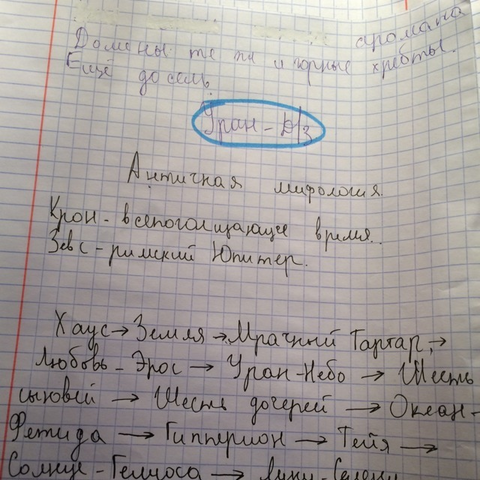 аромата
Долины те же и горные хребты.
Ещё до сель.
Уран - д/з
Античная мифология
Крон - всепоглощающее время.
Зевс - римский Юпитер.
Хаус → Земля → Мрачний Тартар →
Любовь - Эрос → Уран-Небо → Шесть
сыновей → Шесть дочерей → Океан -
Фетида → Гипперион → Тейя →
Солнце - Гелиоса → луну - Селену